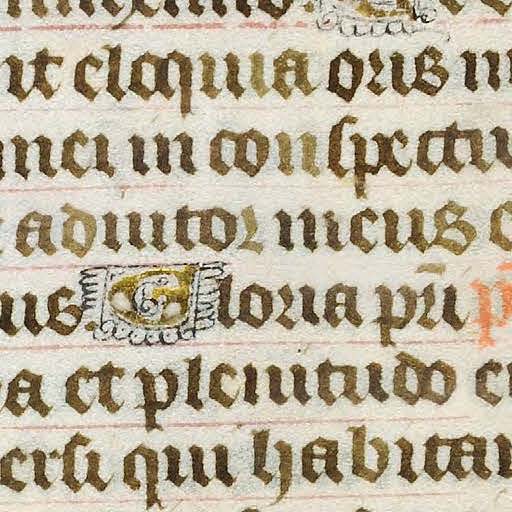 ut eloquia oris m
mei in conspectu
adiutor meus
uis. Gloria pri p
a et plenitudo e
ersi qui habitan